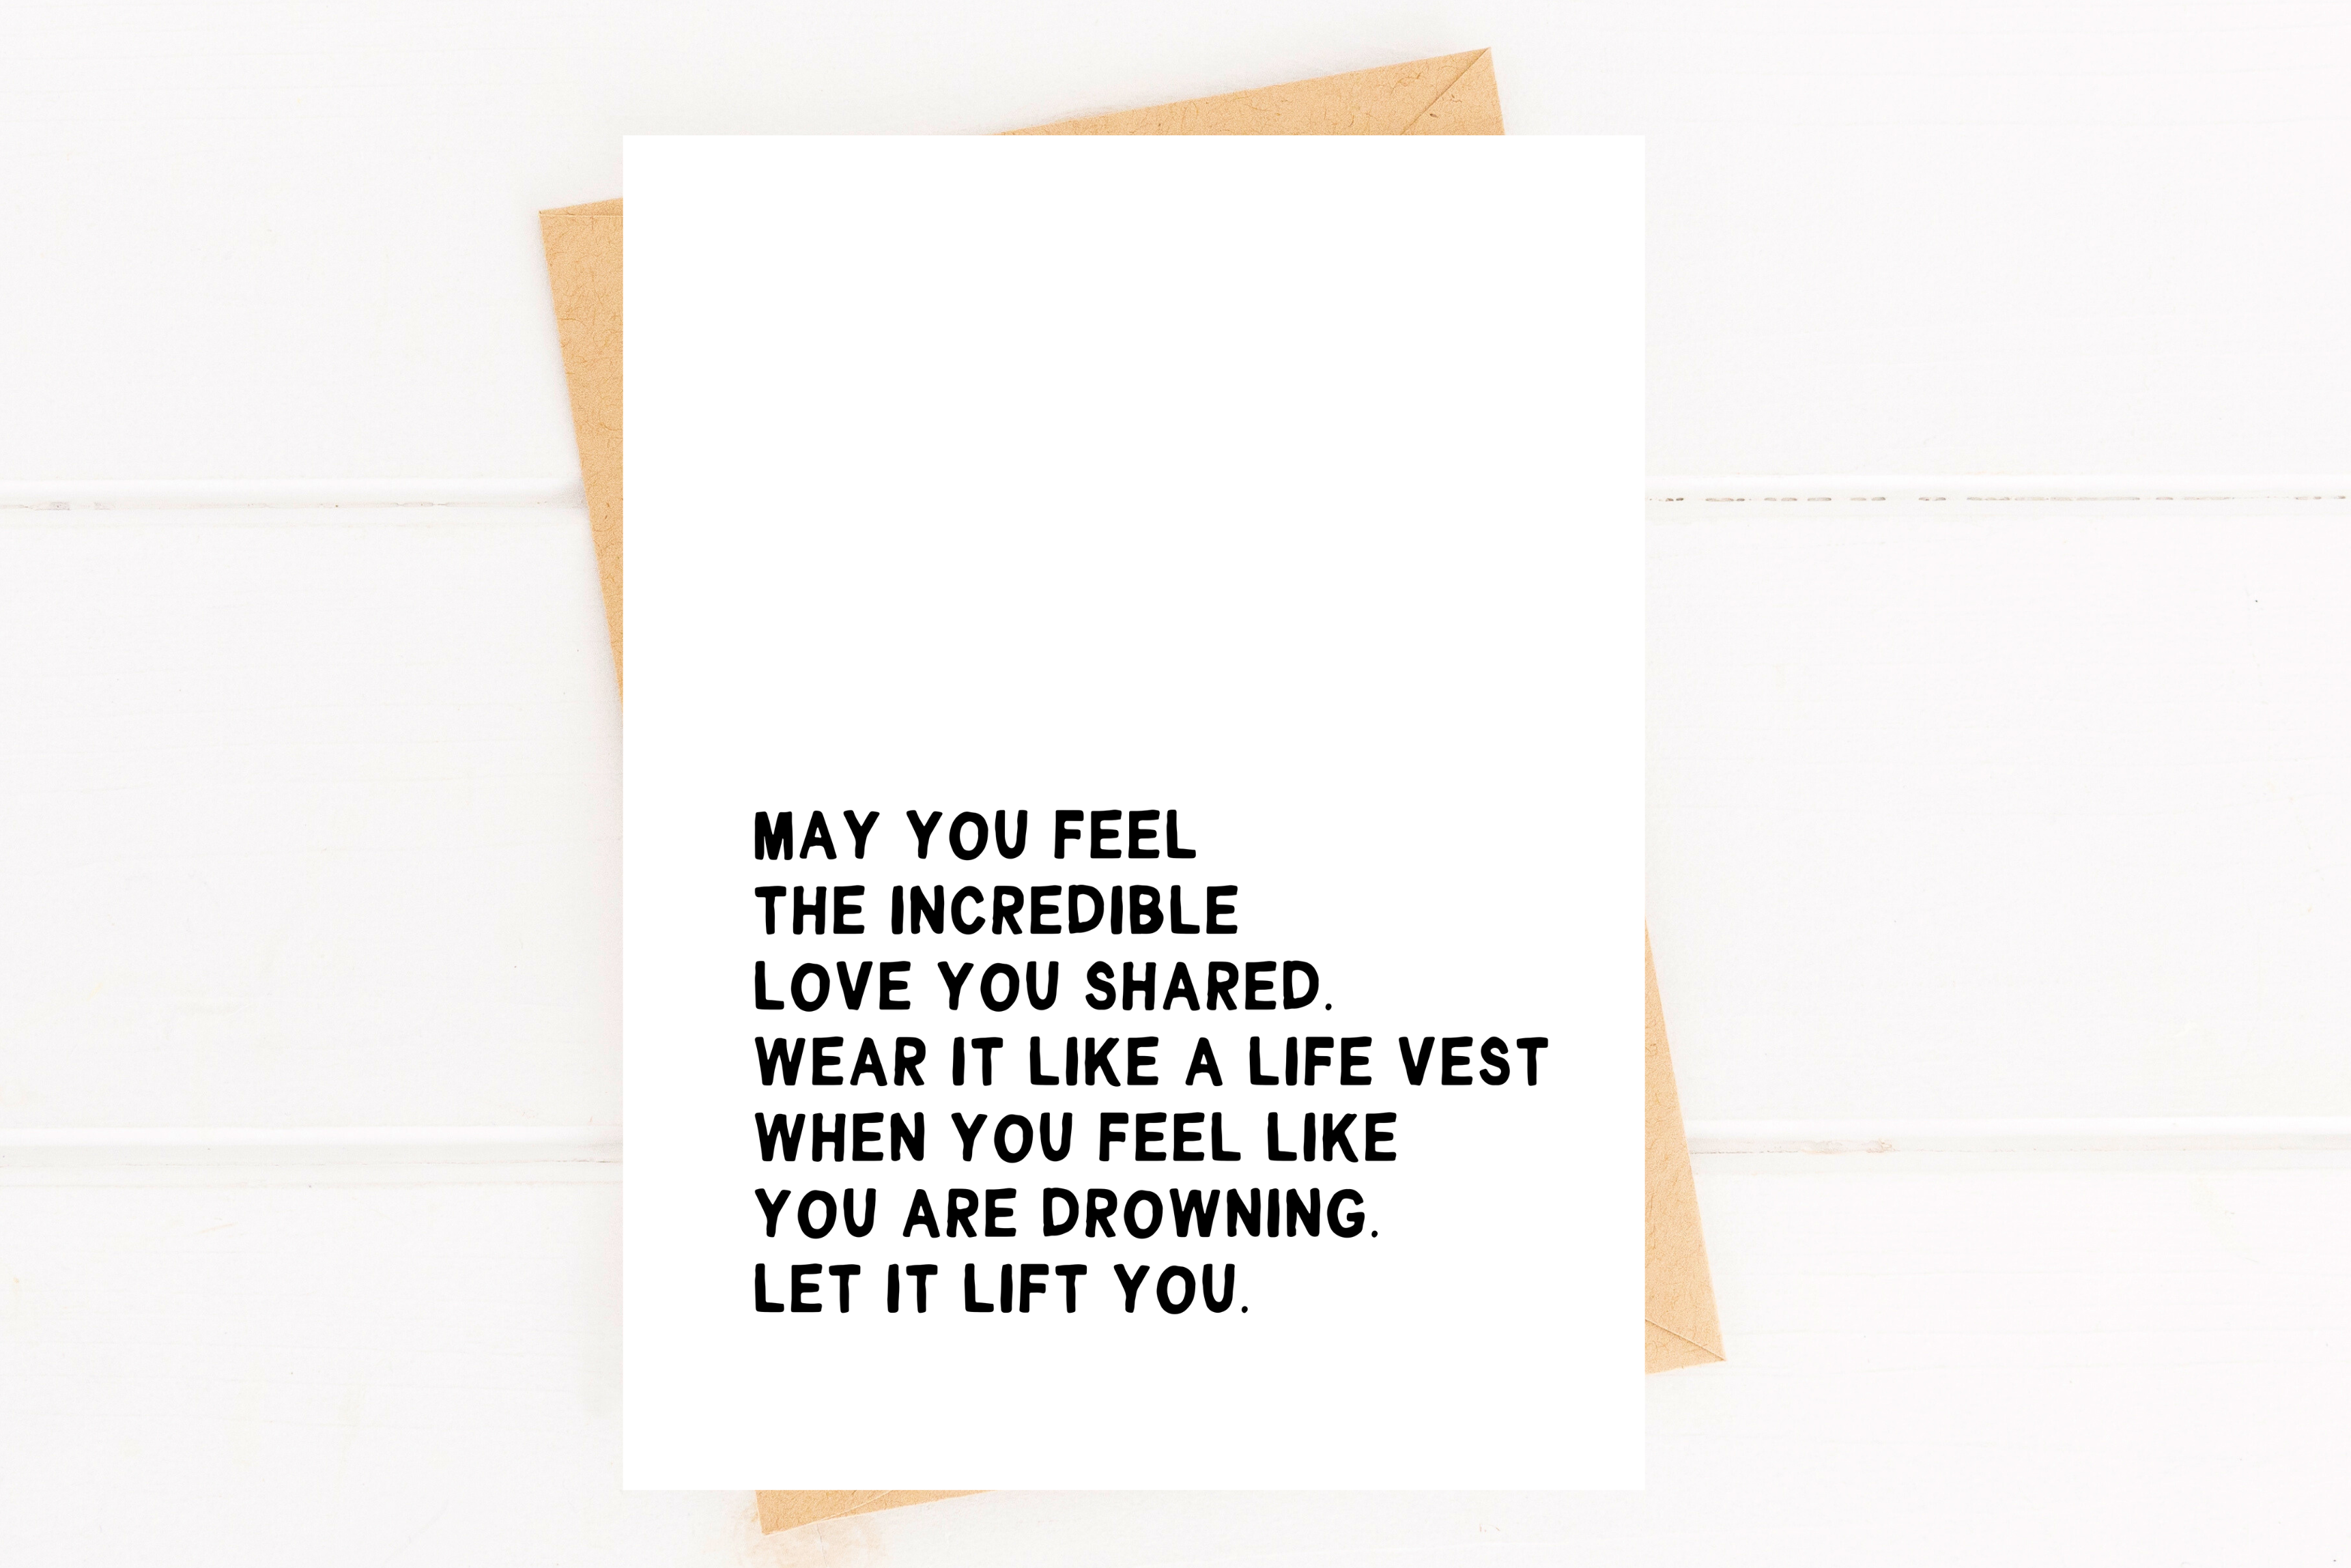 MAY YOU FEEL
THE INCREDIBLE
LOVE YOU SHARED.
WEAR IT LIKE A LIFE VEST
WHEN YOU FEEL LIKE
YOU ARE DROWNING.
LET IT LIFT YOU.